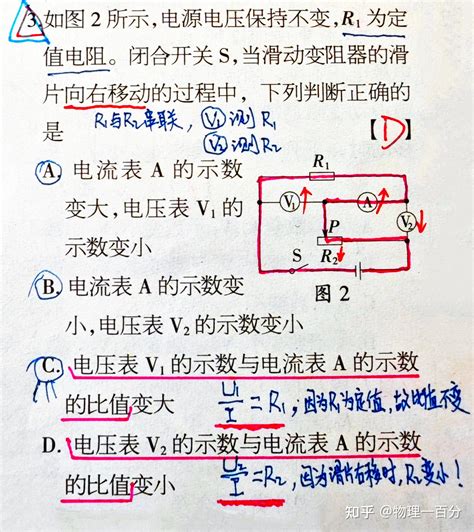 3.如图2所示,电源电压保持不变,R₁为定
值电阻。闭合开关S,当滑动变阻器的滑
片向右移动的过程中,下列判断正确的
是 R₁与R₂串联, V₁测R₁ 【D】
V₂测R₂
A. 电流表A的示数
变大,电压表V₁的
示数变小
B. 电流表A的示数变
小,电压表V₂的示数变小
R₁
V₁
A
V₂
P
S
R₂
图2
C. 电压表V₁的示数与电流表A的示数
的比值变大 U₁/I=R₁,因为R₁为定值,故比值不变
D. 电压表V₂的示数与电流表A的示数
的比值变小 U₂/I=R₂,因为滑片右移时,R₂变小!
知乎 @物理一百分